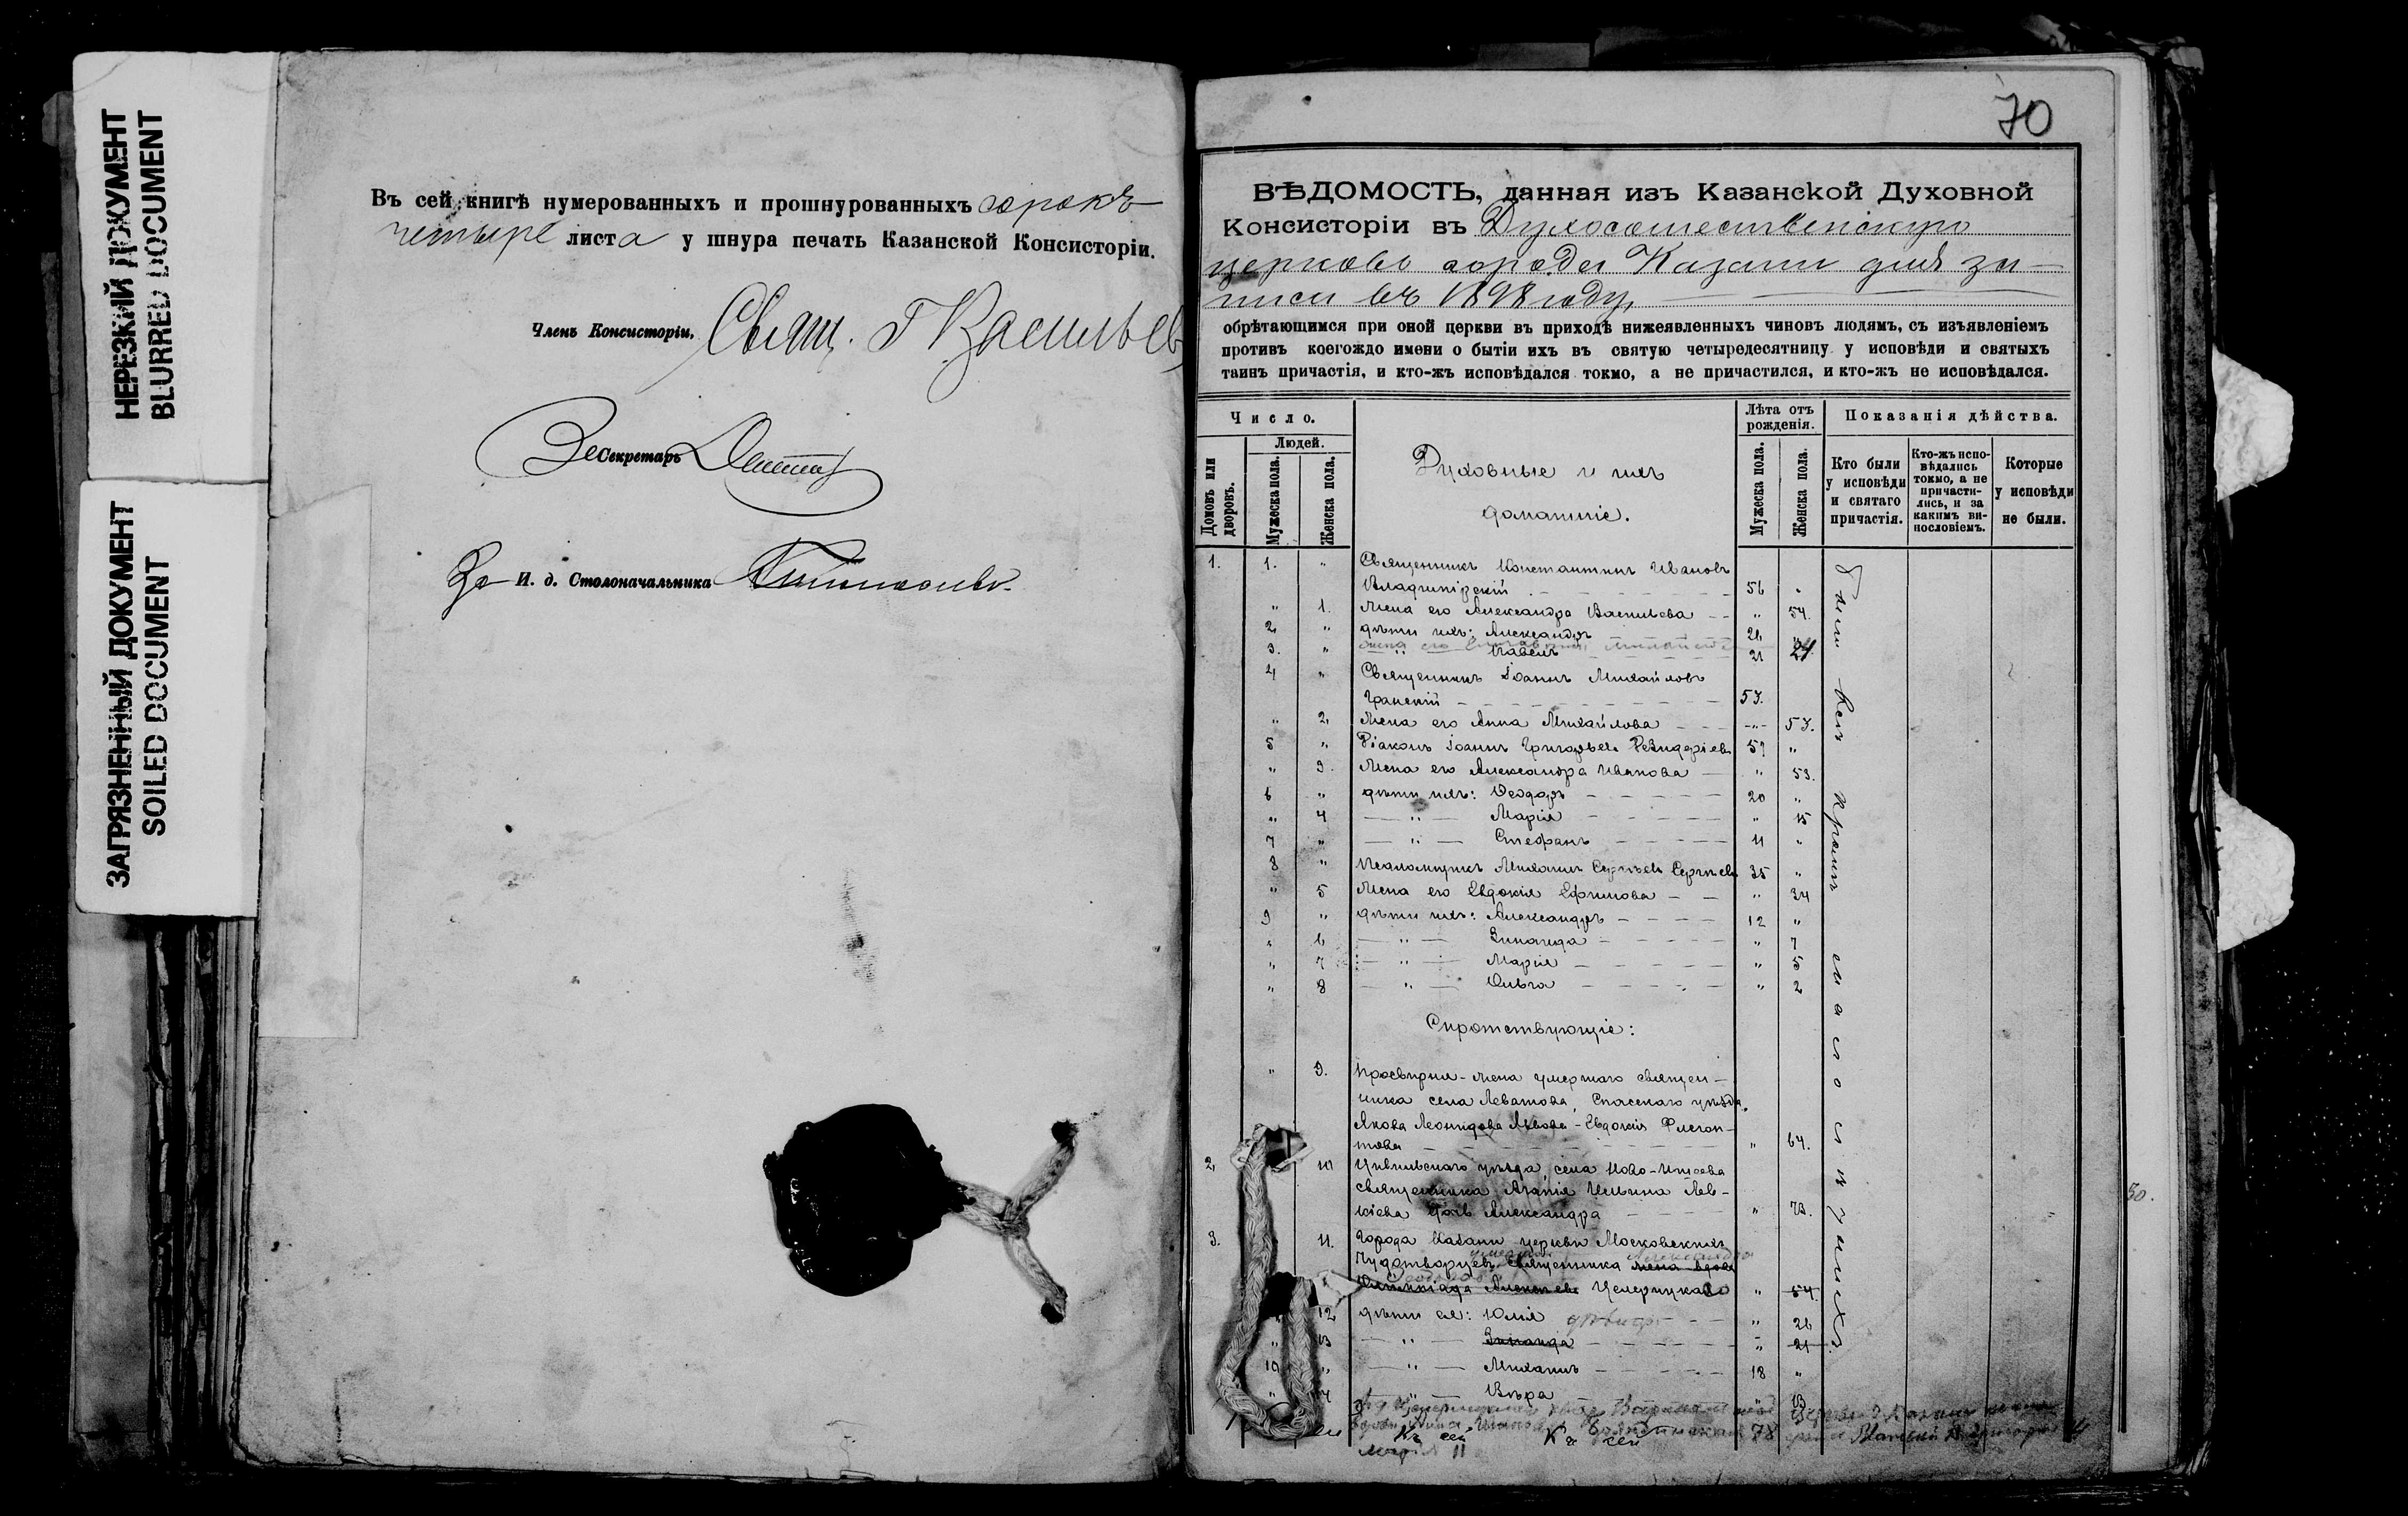 НЕРЕЗКИЙ ДОКУМЕНТ
BLURRED DOCUMENT
ЗАГРЯЗНЕННЫЙ ДОКУМЕНТ
SOILED DOCUMENT
Въ сей книгѣ нумерованныхъ и прошнурованныхъ сорокъ
четыре листа у шнура печать Казанской Консисторіи.
Членъ Консисторіи, Свящ. Г Васильевъ
За Секретаръ
За И. д. Столоначальника
70
ВѢДОМОСТЬ, данная изъ Казанской Духовной
Консисторіи въ Духосошественскую
церковь города Казани для за-
писи въ 1898 году,
обрѣтающимся при оной церкви въ приходѣ нижеявленныхъ чиновъ людямъ, съ изъявленіемъ
противъ коегождо имени о бытіи ихъ въ святую четыредесятницу у исповѣди и святыхъ
таинъ причастія, и кто-жъ исповѣдался токмо, а не причастился, и кто-жъ не исповѣдался.
Число.
Людей.
Домовъ или дворовъ.
Мужеска пола.
Женска пола.
Духовные и ихъ
домашніе.
Лѣта отъ рожденія.
Мужеска пола.
Женска пола.
Показанія дѣйства.
Кто были у исповѣди и святаго причастія.
Кто-жъ исповѣдались токмо, а не причастились, и за какимъ винословіемъ.
Которые у исповѣди не были.
1. 1. " Священникъ Константинъ Ивановъ
Владимірскій 56 "
" 1. Жена его Александра Васильева " 54.
2, " дѣти ихъ: Александръ 26 "
3. " " Павелъ 21 24.
4 " Священникъ Іоаннъ Михайловъ
Гранскій 53.
" 2, Жена его Анна Михайлова " 53.
5 " Діаконъ Іоаннъ Григорьевъ "
" 3. Жена его Александра Иванова " 53.
6 " дѣти ихъ: Ѳеодоръ 20 "
" 4 " Марія " 15
7 " " Стефанъ 11 "
8 " Псаломщикъ Михаилъ Сергѣевъ Сергѣевъ 35 "
" 5 Жена его Евдокія Ефимова " 34
9 " дѣти ихъ: Александръ 12 "
" 6 " Зинаида " 7
" 7 " Марія " 5
" 8 " Ольга " 2
Были всѣ кромѣ малолѣтнихъ.
Сиротствующіе:
" 9. Просвирня - жена умершаго священ-
ника села Левашова, Спасскаго уѣзда,
Якова Леонидова Львова - Евдокія Флегон-
това " 64.
2, 10 Цивильскаго уѣзда, села Ново-
священника Ильина Лев-
кіева Александра " 73.
3. 11. Города Казани церкви Московскихъ
Чудотворцевъ умершаго священника жена вдова Александра
" 54.
12 дѣти ея: Юлія дѣвица " 26
" 13 " Зинаида " 21
10 " " Михаилъ 18 "
" 14 " Вѣра " 13
78
Марія 11
50.